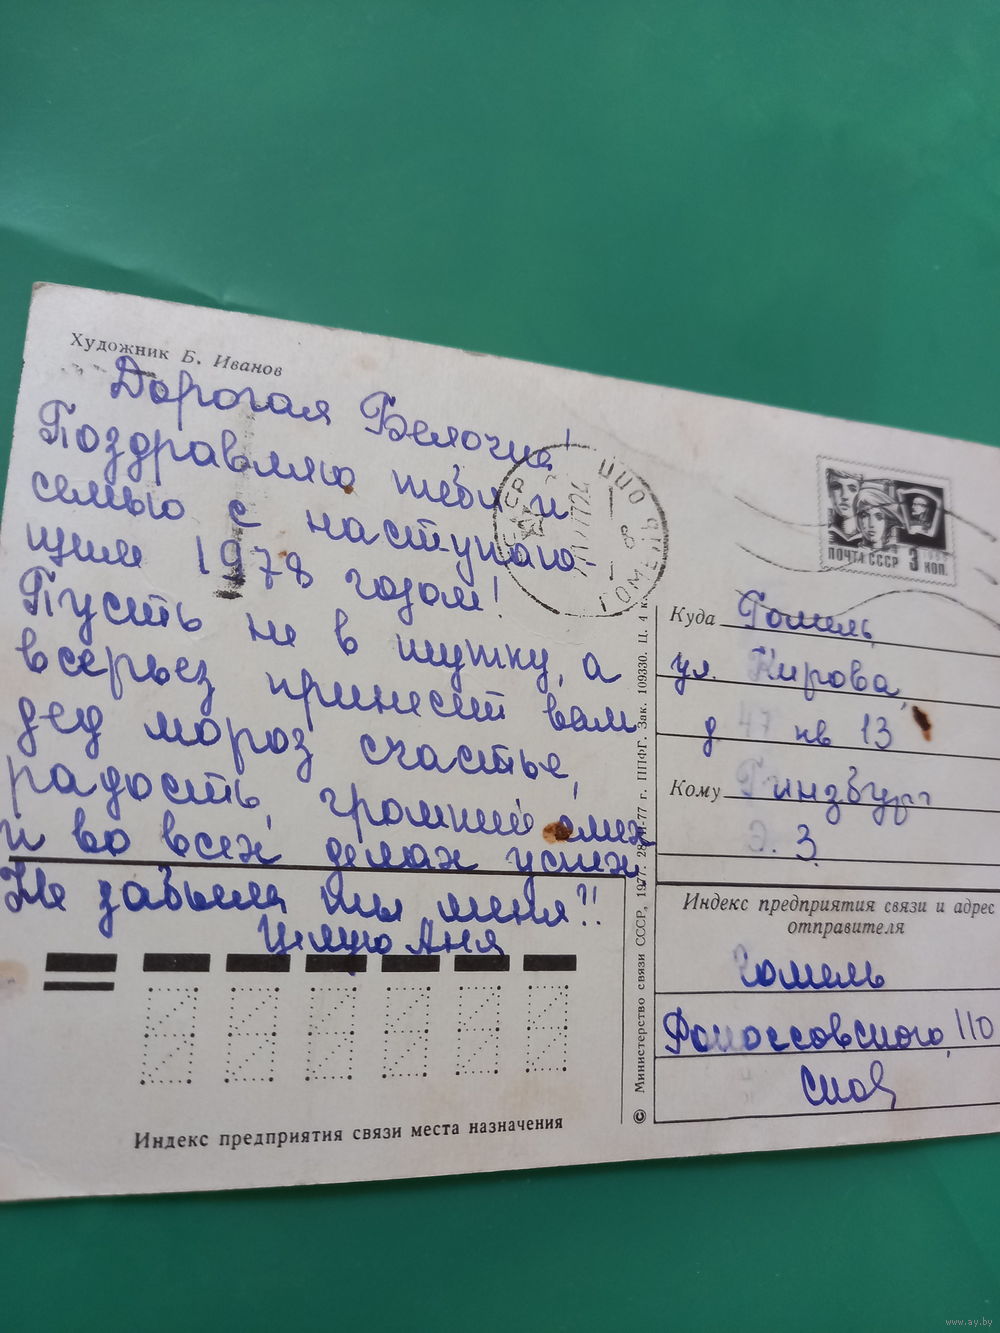 Художник Б. Иванов
Дорогая Белочка!
Поздравляю тебя и
семью с наступаю-
щим 1978 годом!
Пусть не в шутку, а
всерьез принесет вам
дед мороз счастье,
радость, громкий смех
и во всех делах успех.
Не забыла ты меня?!!
Целую Аня
Индекс предприятия связи места назначения
© Министерство связи СССР, 1977. 77 г. ППФГ. Зак. 109330. Ц. 4 к.
ГОМЕЛЬ
ПОЧТА СССР 3 КОП.
Куда Гомель,
ул. Кирова,
д 47 кв 13
Кому Гинзбург
Э. З.
Индекс предприятия связи и адрес
отправителя
Гомель
110
www.ay.by